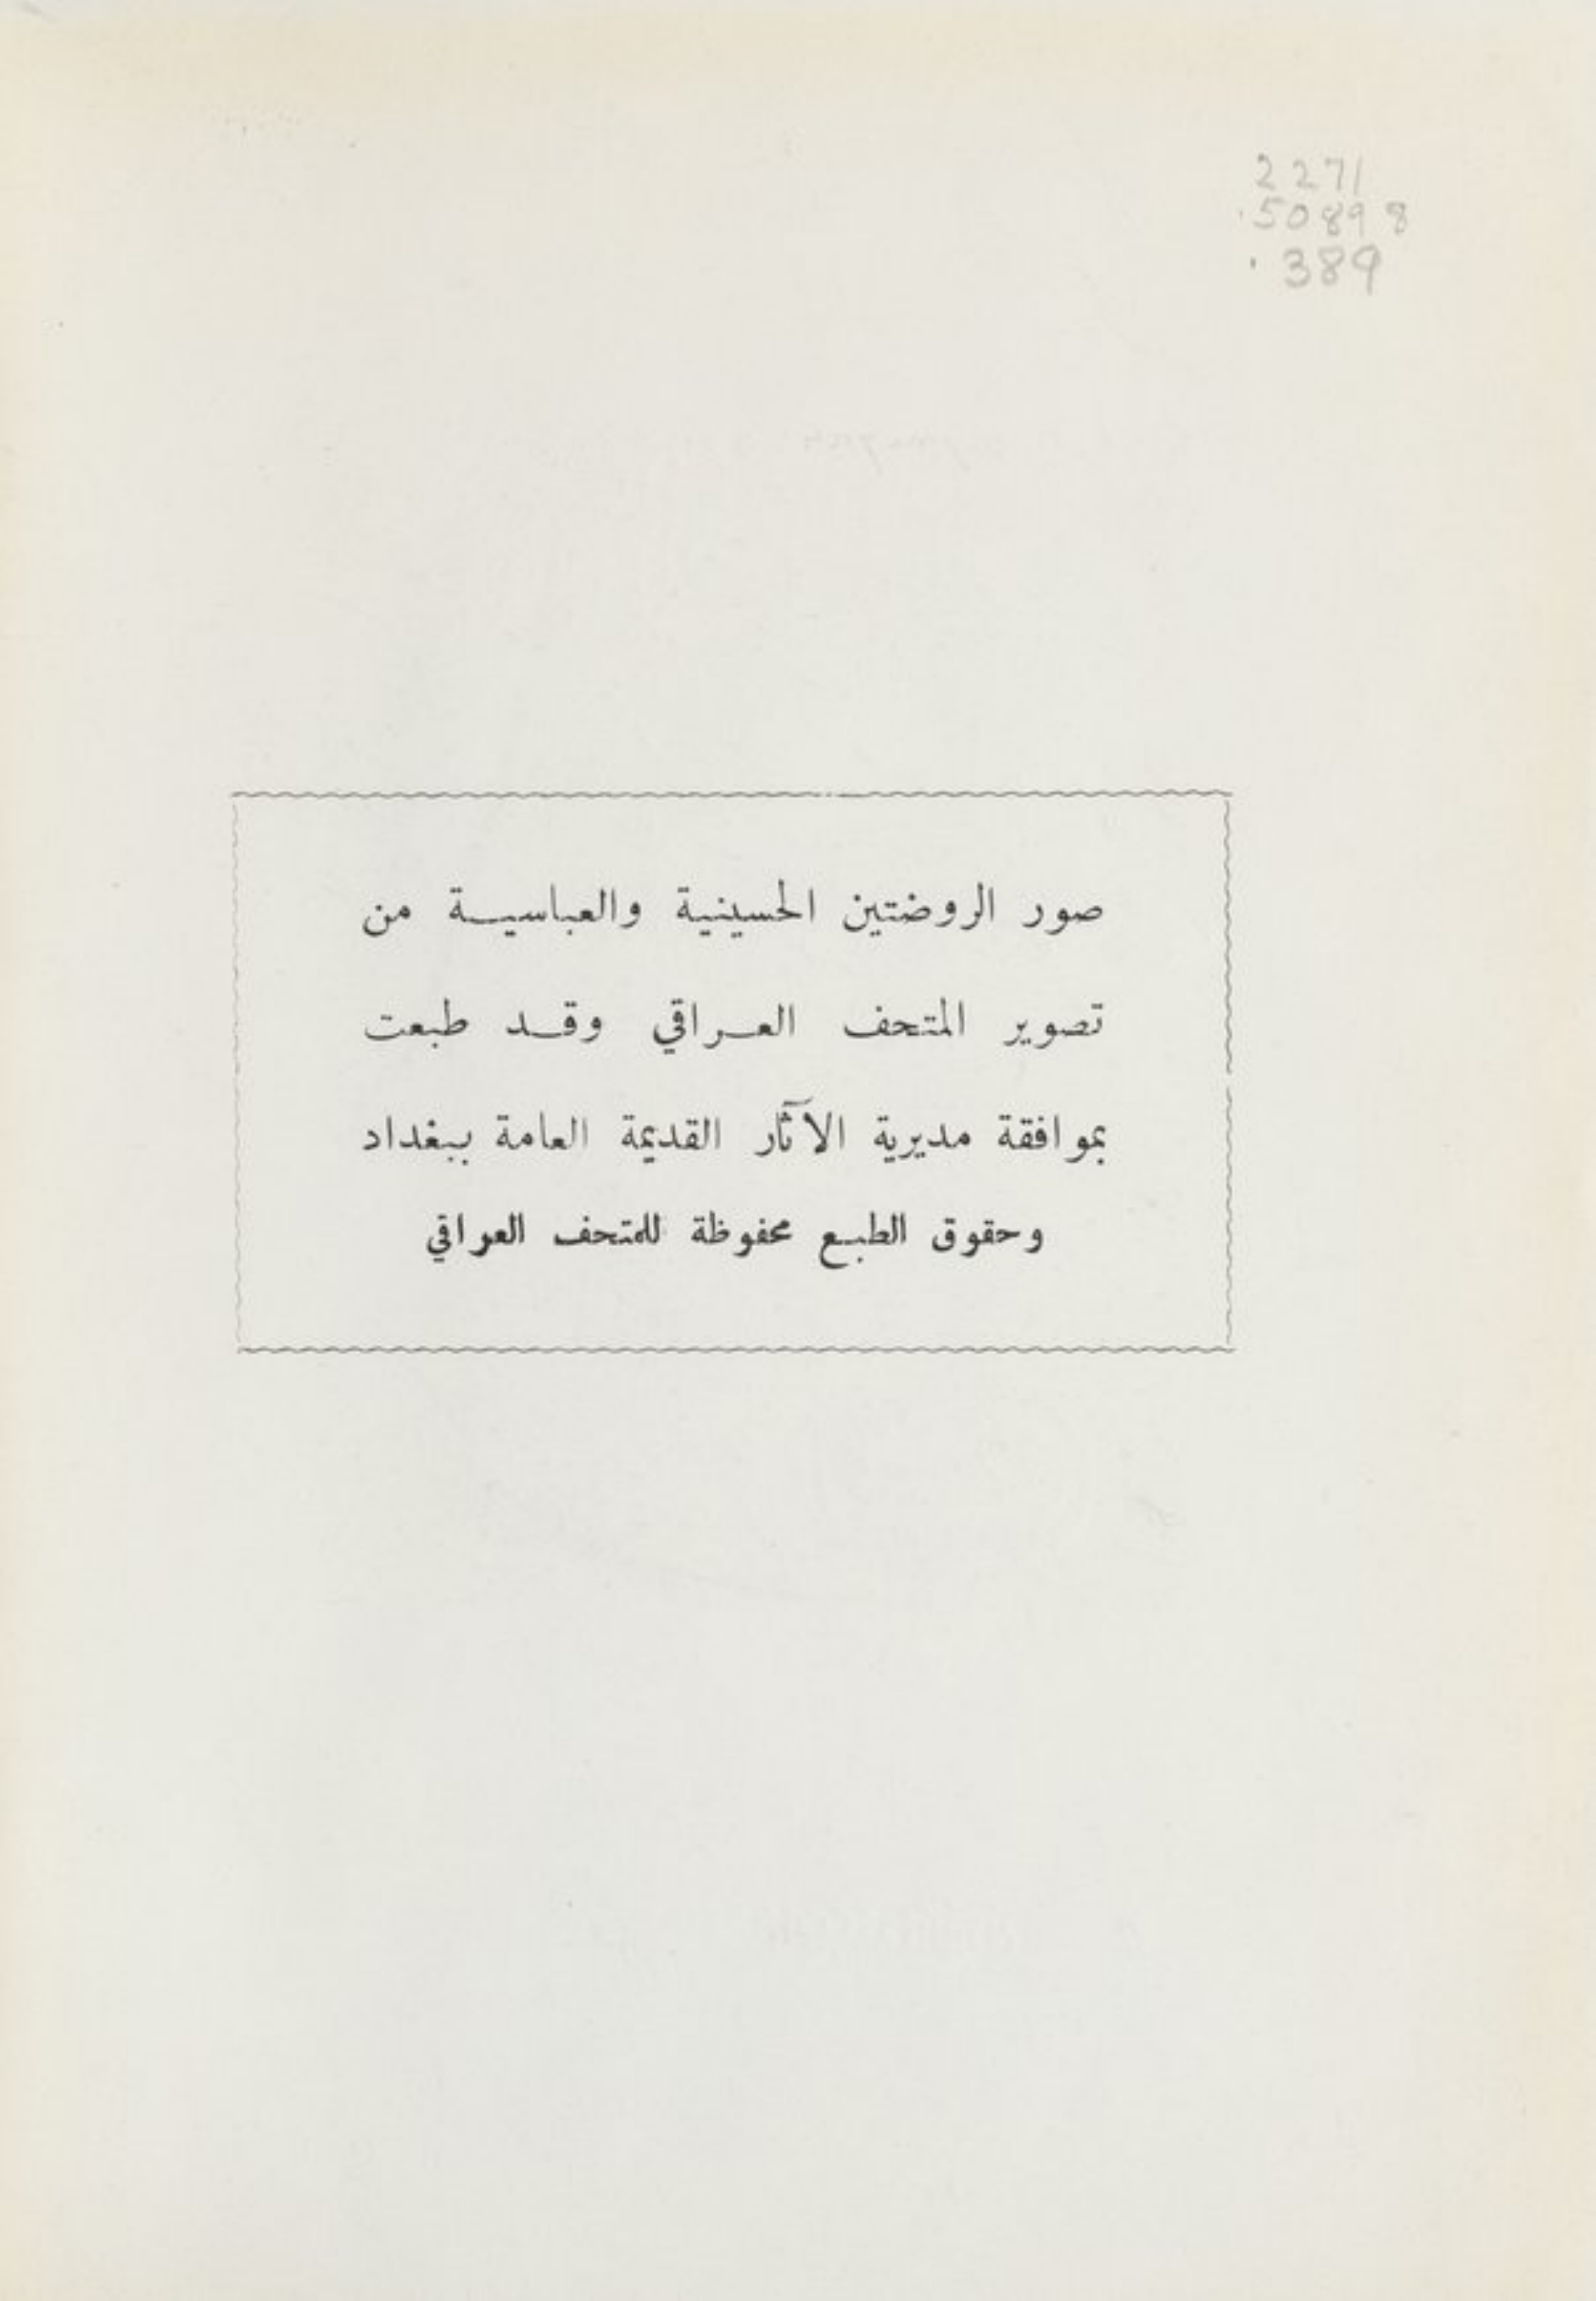 2271
.50898
.389
صور الروضتين الحسينية والعباسية من
تصوير المتحف العراقي وقد طبعت
بموافقة مديرية الآثار القديمة العامة ببغداد
وحقوق الطبع محفوظة للمتحف العراقي